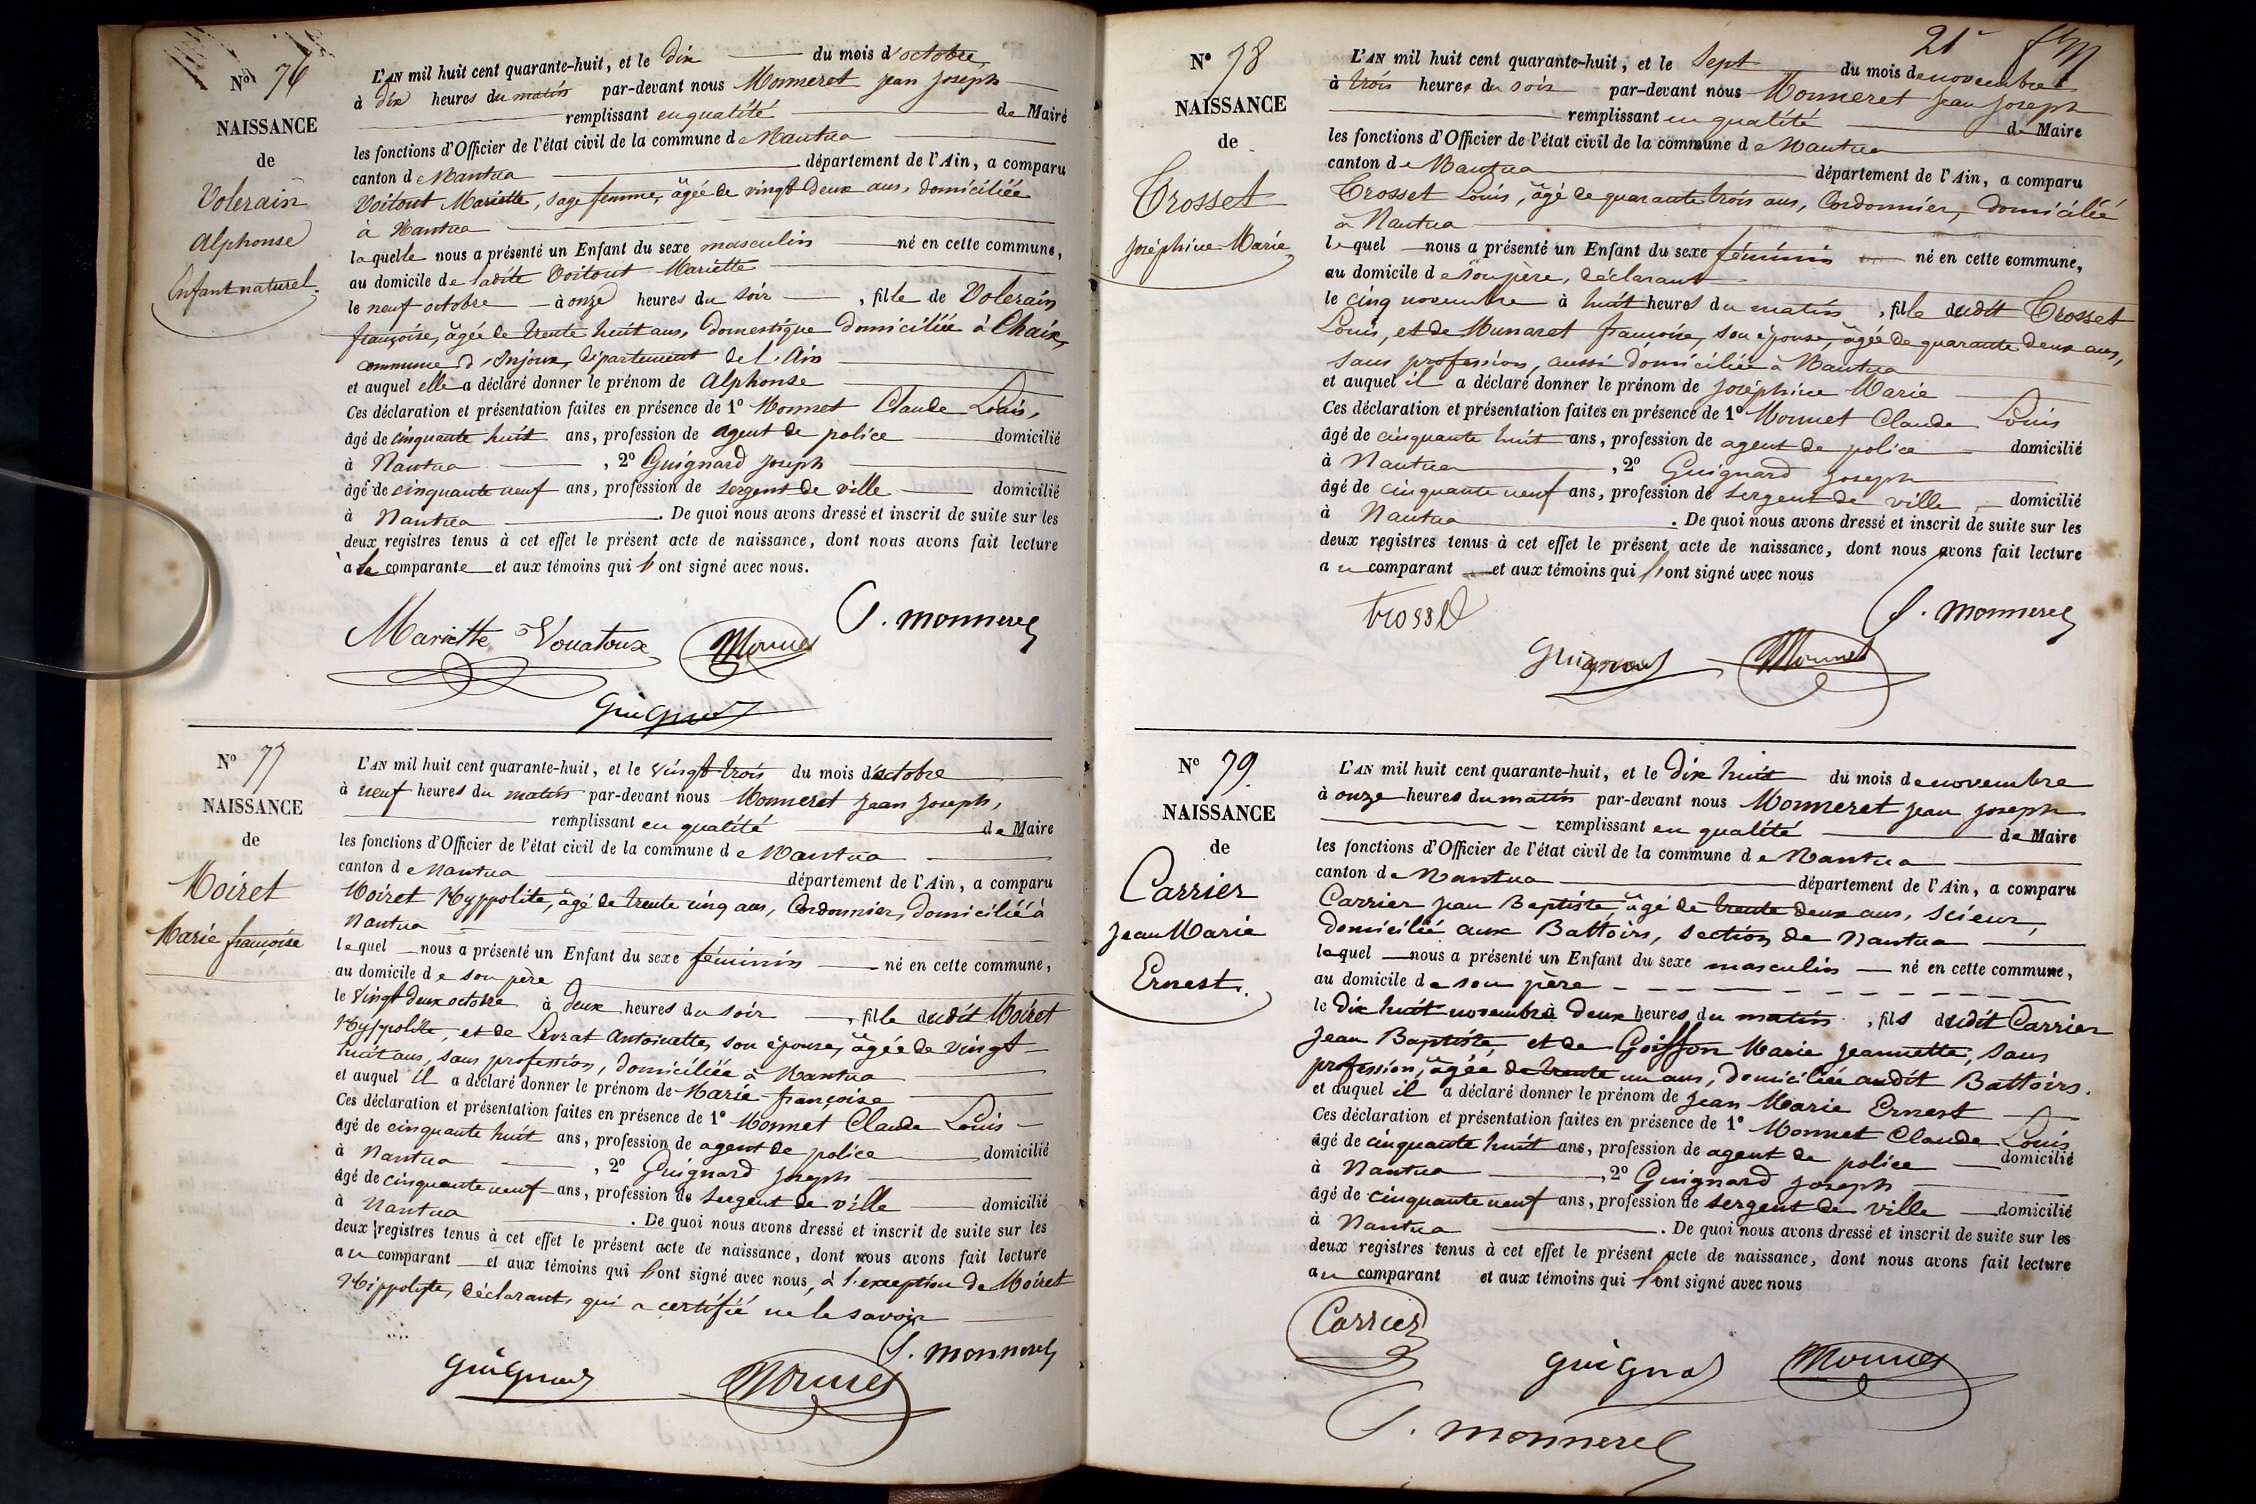 No 76
NAISSANCE
de
Volerain
Alphonse
Enfant naturel.
L'AN mil huit cent quarante-huit, et le dix du mois d'octobre,
à dix heures du matin par-devant nous Monneret jean joseph
remplissant en qualité de Maire
les fonctions d'Officier de l'état civil de la commune de Nantua
canton de Nantua département de l'Ain, a comparu
Voitout Mariette, sage femme, âgée de vingt deux ans, domiciliée
à Nantua
laquelle nous a présenté un Enfant du sexe masculin né en cette commune,
au domicile de ladite Voitout Mariette
le neuf octobre à onze heures du soir, fille de Volerain
françoise, âgée de trente huit ans, domestique domiciliée à Chaix,
commune d'Injoux, département de l'Ain
et auquel elle a déclaré donner le prénom de Alphonse
Ces déclaration et présentation faites en présence de 1o Monnet Claude Louis,
âgé de cinquante huit ans, profession de agent de police domicilié
à Nantua, 2o Guignard joseph
âgé de cinquante neuf ans, profession de sergent de ville domicilié
à Nantua. De quoi nous avons dressé et inscrit de suite sur les
deux registres tenus à cet effet le présent acte de naissance, dont nous avons fait lecture
à la comparante et aux témoins qui l'ont signé avec nous.
J. monneret
Mariette Vouatoux Monnet
guignard
No 77
NAISSANCE
de
Moiret
Marie françoise
L'AN mil huit cent quarante-huit, et le vingt trois du mois d'octobre
à neuf heures du matin par-devant nous Monneret jean joseph,
remplissant en qualité de Maire
les fonctions d'Officier de l'état civil de la commune de Nantua
canton de Nantua département de l'Ain, a comparu
Moiret Hyppolite, âgé de trente cinq ans, Cordonnier, domicilié à
Nantua
lequel nous a présenté un Enfant du sexe féminin né en cette commune,
au domicile de son père
le vingt deux octobre à deux heures du soir, fille dudit Moiret
Hyppolite, et de Levrat Antoinette, son épouse, âgée de vingt
huit ans, sans profession, domiciliée à Nantua
et auquel il a déclaré donner le prénom de Marie françoise
Ces déclaration et présentation faites en présence de 1o Monnet Claude Louis
âgé de cinquante huit ans, profession de agent de police domicilié
à Nantua, 2o Guignard joseph
âgé de cinquante neuf ans, profession de sergent de ville domicilié
à Nantua. De quoi nous avons dressé et inscrit de suite sur les
deux registres tenus à cet effet le présent acte de naissance, dont nous avons fait lecture
au comparant et aux témoins qui l'ont signé avec nous, à l'exception de Moiret
Hippolyte, déclarant, qui a certifié ne le savoir
J. monneret
guignard Monnet
21e
No 78
NAISSANCE
de
Trosset
joséphine Marie
L'AN mil huit cent quarante-huit, et le sept du mois de novembre
à trois heures du soir par-devant nous Monneret jean joseph
remplissant en qualité de Maire
les fonctions d'Officier de l'état civil de la commune de Nantua
canton de Nantua département de l'Ain, a comparu
Trosset Louis, âgé de quarante trois ans, Cordonnier, domicilié
à Nantua
lequel nous a présenté un Enfant du sexe féminin né en cette commune,
au domicile de son père, déclarant
le cinq novembre à huit heures du matin, fille dudit Trosset
Louis, et de Munaret françoise, son épouse, âgée de quarante deux ans,
sans profession, aussi domiciliée à Nantua
et auquel il a déclaré donner le prénom de joséphine Marie
Ces déclaration et présentation faites en présence de 1o Monnet Claude Louis
âgé de cinquante huit ans, profession de agent de police domicilié
à Nantua, 2o Guignard joseph
âgé de cinquante neuf ans, profession de sergent de ville domicilié
à Nantua. De quoi nous avons dressé et inscrit de suite sur les
deux registres tenus à cet effet le présent acte de naissance, dont nous avons fait lecture
au comparant et aux témoins qui l'ont signé avec nous
trosset J. monneret
guignard Monnet
No 79.
NAISSANCE
de
Carrier
jean Marie
Ernest.
L'AN mil huit cent quarante-huit, et le dix huit du mois de novembre
à onze heures du matin par-devant nous Monneret jean joseph
remplissant en qualité de Maire
les fonctions d'Officier de l'état civil de la commune de Nantua
canton de Nantua département de l'Ain, a comparu
Carrier jean Baptiste, âgé de trente deux ans, scieur,
domicilié aux Battoirs, section de Nantua
lequel nous a présenté un Enfant du sexe masculin né en cette commune,
au domicile de son père
le dix huit novembre à deux heures du matin, fils dudit Carrier
jean Baptiste et de Goiffon Marie jeannette, sans
profession, âgée de trente un ans, domiciliée audit Battoirs.
et auquel il a déclaré donner le prénom de jean Marie Ernest
Ces déclaration et présentation faites en présence de 1o Monnet Claude Louis
âgé de cinquante huit ans, profession de agent de police domicilié
à Nantua, 2o Guignard joseph
âgé de cinquante neuf ans, profession de sergent de ville domicilié
à Nantua. De quoi nous avons dressé et inscrit de suite sur les
deux registres tenus à cet effet le présent acte de naissance, dont nous avons fait lecture
au comparant et aux témoins qui l'ont signé avec nous
Carrier
guignard Monnet
J. monneret